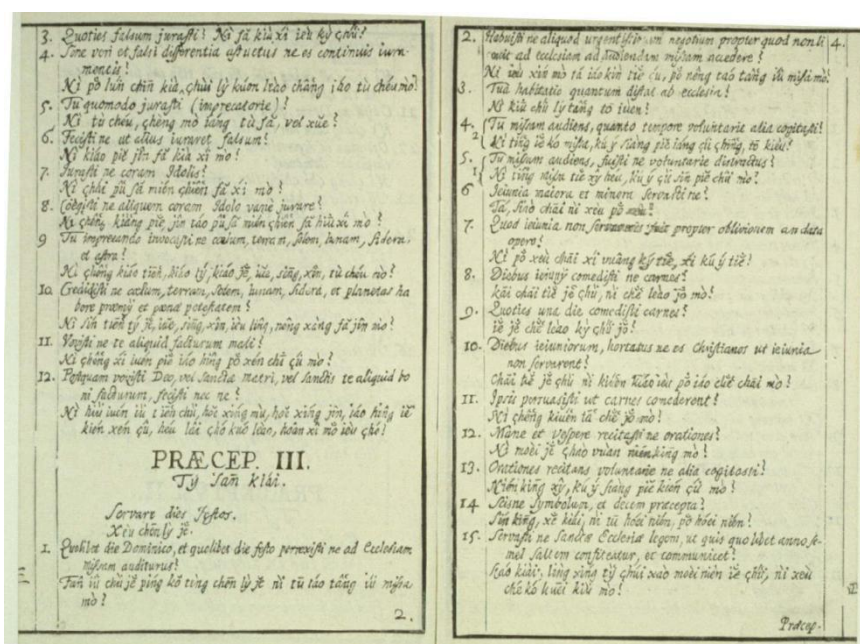 3. Quoties falsum jurasti? Ni fă kià xi ieú kỳ çhú?
4. Sine veri et falsi differentia assuetus ne es continuis iura-
mentis?
Ni pŏ lún chin kià, çhúi lỳ kúon leào chàng iáo tù chéu mo?
5. Tu quomodo jurasti (imprecatorie)?
Ni tù chéu, çhèng mò iáng tù fă, vel xuě?
6. Fecisti ne ut alius iuraret falsum?
Ni kiáo piě jîn fă kià xi mò?
7. Jurasti ne coram Idolis?
Ni chái pû să mién çhiên fă xi mò?
8. Coëgisti ne aliquem coram Idolo vanè jurare?
Ni chêng kiàng piě jîn táo pû să mién çhiên fă hiū xi mo?
9 Tu imprecando invocasti ne cælum, terram, solem, lunam, sidera,
et astra?
Ni chêng kiáo tiēn, kiáo tý, kiáo jĕ, iuĕ, sīng, xîn, tù chéu mo?
10. Credidisti ne cælum, terram, solem, lunam, sidera, et planetas ha
bere præmij et pœnæ potestatem?
Ni sín tiēn tý jĕ, iuĕ, sīng, xîn, ièu lîng, nêng xàng fă jîn mo?
11. Vovisti ne te aliquid facturum mali?
Ni chêng xi iuén piě iáo hîng pŏ xén chi çú mo?
12. Postquam vovisti Deo, vel Sanctæ Matri, vel Sanctis te aliquid bo
ni facturum, fecisti nec ne?
Ni hiù iuén iû tiēn chù, hoĕ xíng mù, hoĕ xíng jîn, iáo hîng iĕ
kién xén çú, héu lâi çhó kuó leào, hoân xi mo ièu çhó?
PRÆCEP. III.
Tý san kiái.
Servare dies festos.
Xèu chēn lỳ jĕ.
1. Quolibet die Dominico, et quolibet die festo perrexisti ne ad Ecclesiam
missam auditurus?
Fuñ iû chù jĕ pīng kŏ tīng chēn lỳ jĕ nì tū táo tâng iû missa
mò?
2.
2. Habuisti ne aliquod urgentissimum negotium propter quod non li
cuit ad ecclesiam ad audiendam missam accedere?
Ni ièu xin mo tá iáo kin tiĕ çú, pŏ nêng táo tâng iû misa mò?
3. Tua habitatio quantum distat ab ecclesia?
Ni kiū chú lỳ tâng tō iuèn?
4. Tu missam audiens, quanto tempore voluntarie alia cogitasti?
2 Ni tīng iĕ kó missa, kú ý siàng piĕ iáng çú çhîng, tō kièu?
5. Tu missam audiens, fuisti ne voluntarie distractus?
1 Ni tīng misa tiĕ xŷ héu, kú ý çú sin piĕ chú mo?
6 Ieiunia maiora et minora servasti ne?
Tá, siào chāi nì xèu pŏ xèu?
7. Quod ieiunia non servaveris fuit propter oblivionem an data
opera?
Nì pŏ xèu chāi xi vuâng ký tiĕ, xi kú ý tiĕ?
8. Diebus ieiunij comedisti ne carnes?
kāi chāi tiĕ jĕ çhù, nì chĕ leào jŏ mò?
9. Quoties una die comedisti carnes?
iĕ jĕ chĕ leào kỳ çhú jŏ?
10. Diebus ieiuniorum, hortatus ne es Christianos ut ieiunia
non servarent?
Chāi tiĕ jĕ çhù nì kiuén kiáo ièu pŏ iáo chèu chāi mò?
11. Ipsis persuasisti ut carnes comederent?
Nì chêng kiuén tā chĕ jŏ mo?
12. Mane et vespere recitasti ne orationes?
Nì mòei jĕ çhào vuàn nién kīng mò?
13. Orationes recitans voluntarie ne alia cogitasti?
Nién kīng xŷ, kú ý siàng piĕ kién çú mò?
14 Scisne symbolum, et decem præcepta?
Sín kīng, xĕ kiái, nì tū hóei nién, pŏ hóei nién?
15. Servasti ne Sanctæ Ecclesiæ legem, ut quis quolibet anno se-
mel saltem confiteatur, et communicet?
Kào kiái, líng xíng tỳ çhúi xào mòei niên iĕ çhú, nì xèu
ché kó kuēi kiù mo?
Præcep.
4.